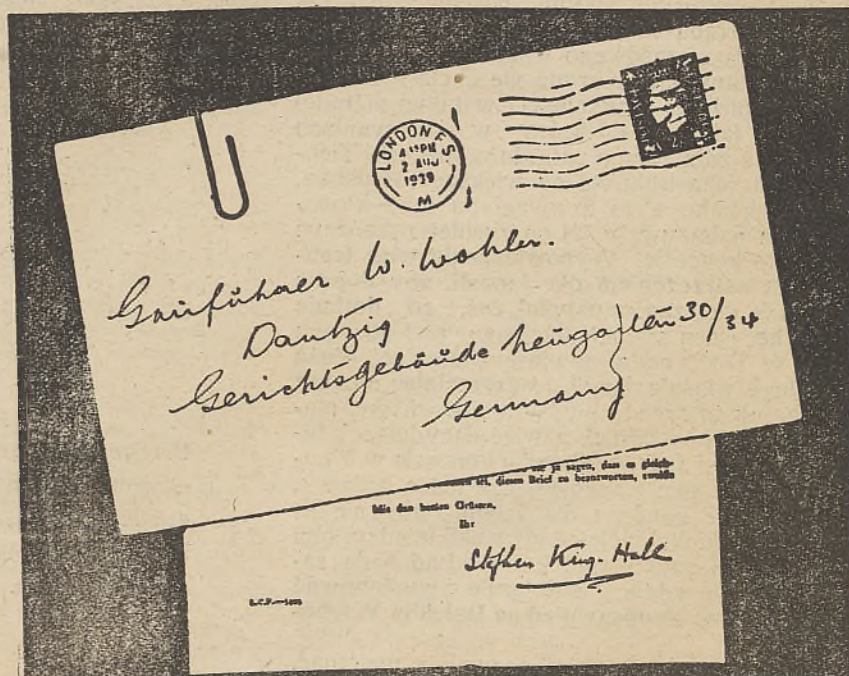 LONDON F.S.
2 AUG
1939
M
Gauführer W. Wohler.
Dantzig
Gerichtsgebäude Neugarten 30/34
Germany
ja sagen, dass es gleich-
sei, diesen Brief zu beantworten,
Mit den besten Grüssen,
Ihr
Stephen King-Hall